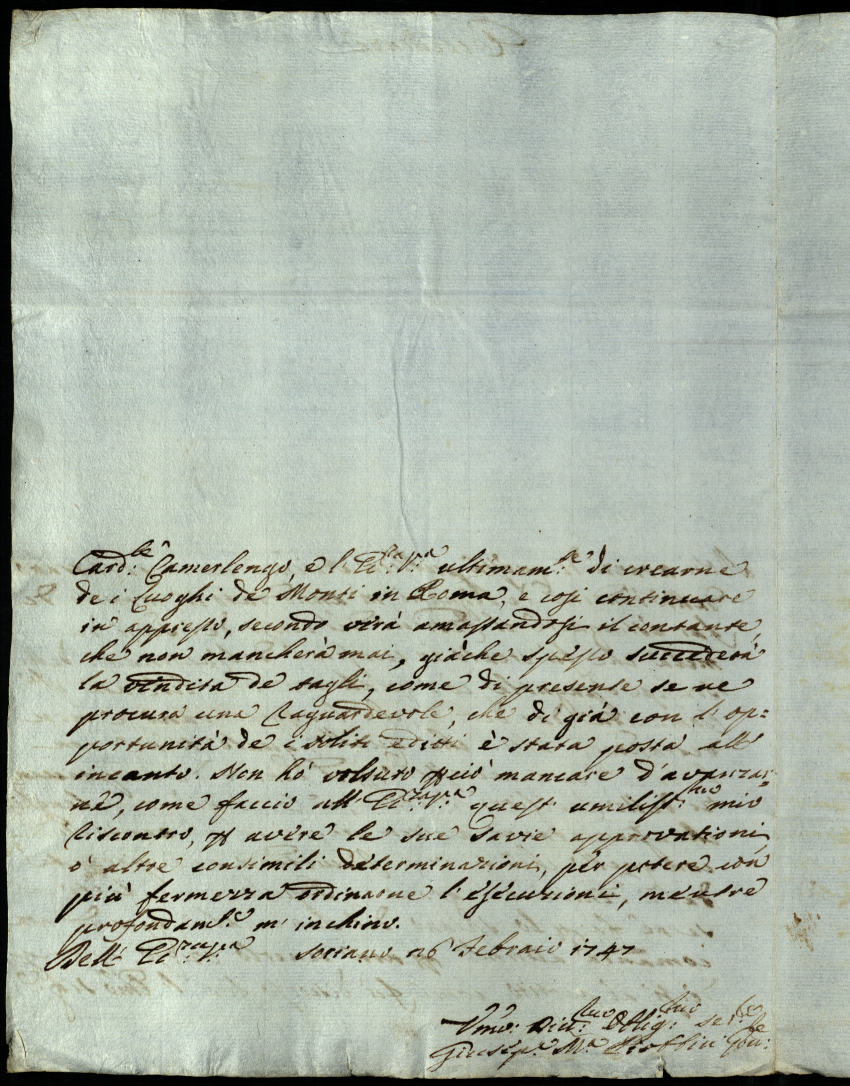 Card:le Camerlengo, e l'Ecc:za V:ra ultimam:te di crearne
de i Luoghi de Monti in Roma, e così continuare
in appresso, secondo virà amassandosi il contante,
che non mancherà mai, giache spesso succederà
la vendita de tagli, come di presente se ne
procura una raguardevole, che di già con l'op=
portunità de i soliti editti è stata posta all'
incanto. Non hò volsuto perciò mancare d'avanzar=
ne, come faccio all' Ecc:za V:ra quest' umiliss:mo mio
riscontro, per avere le sue savie approvationi,
o altre consimili determinazioni, per potere con
più fermezza ordinarne l'esecuzioni, mentre
profondam:te m'inchino.
Dell' Ecc:za V:ra Soriano 26 Febraio 1747
Um:o Div:mo Oblig:mo Ser:re
Giusep:e M:a